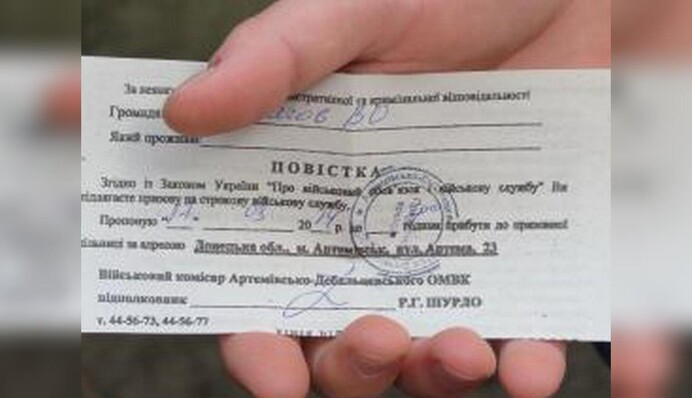 За                     та кримінальної відповідальності
Громадя             ВО
Який прожива
ПОВІСТКА
Згідно із Законом України "Про військовий обов'язок і військову службу" Ви
підлягаєте призову на строкову військову службу.
Пропоную "     "      20     р. до       годині прибути до призовної
дільниці за адресою Донецька обл., м. Артемівськ, вул. Артема, 23
Військовий комісар Артемівсько-Дебальцевського ОМВК
підполковник                     Р.Г. ШУРЛО
т. 44-56-73, 44-56-77